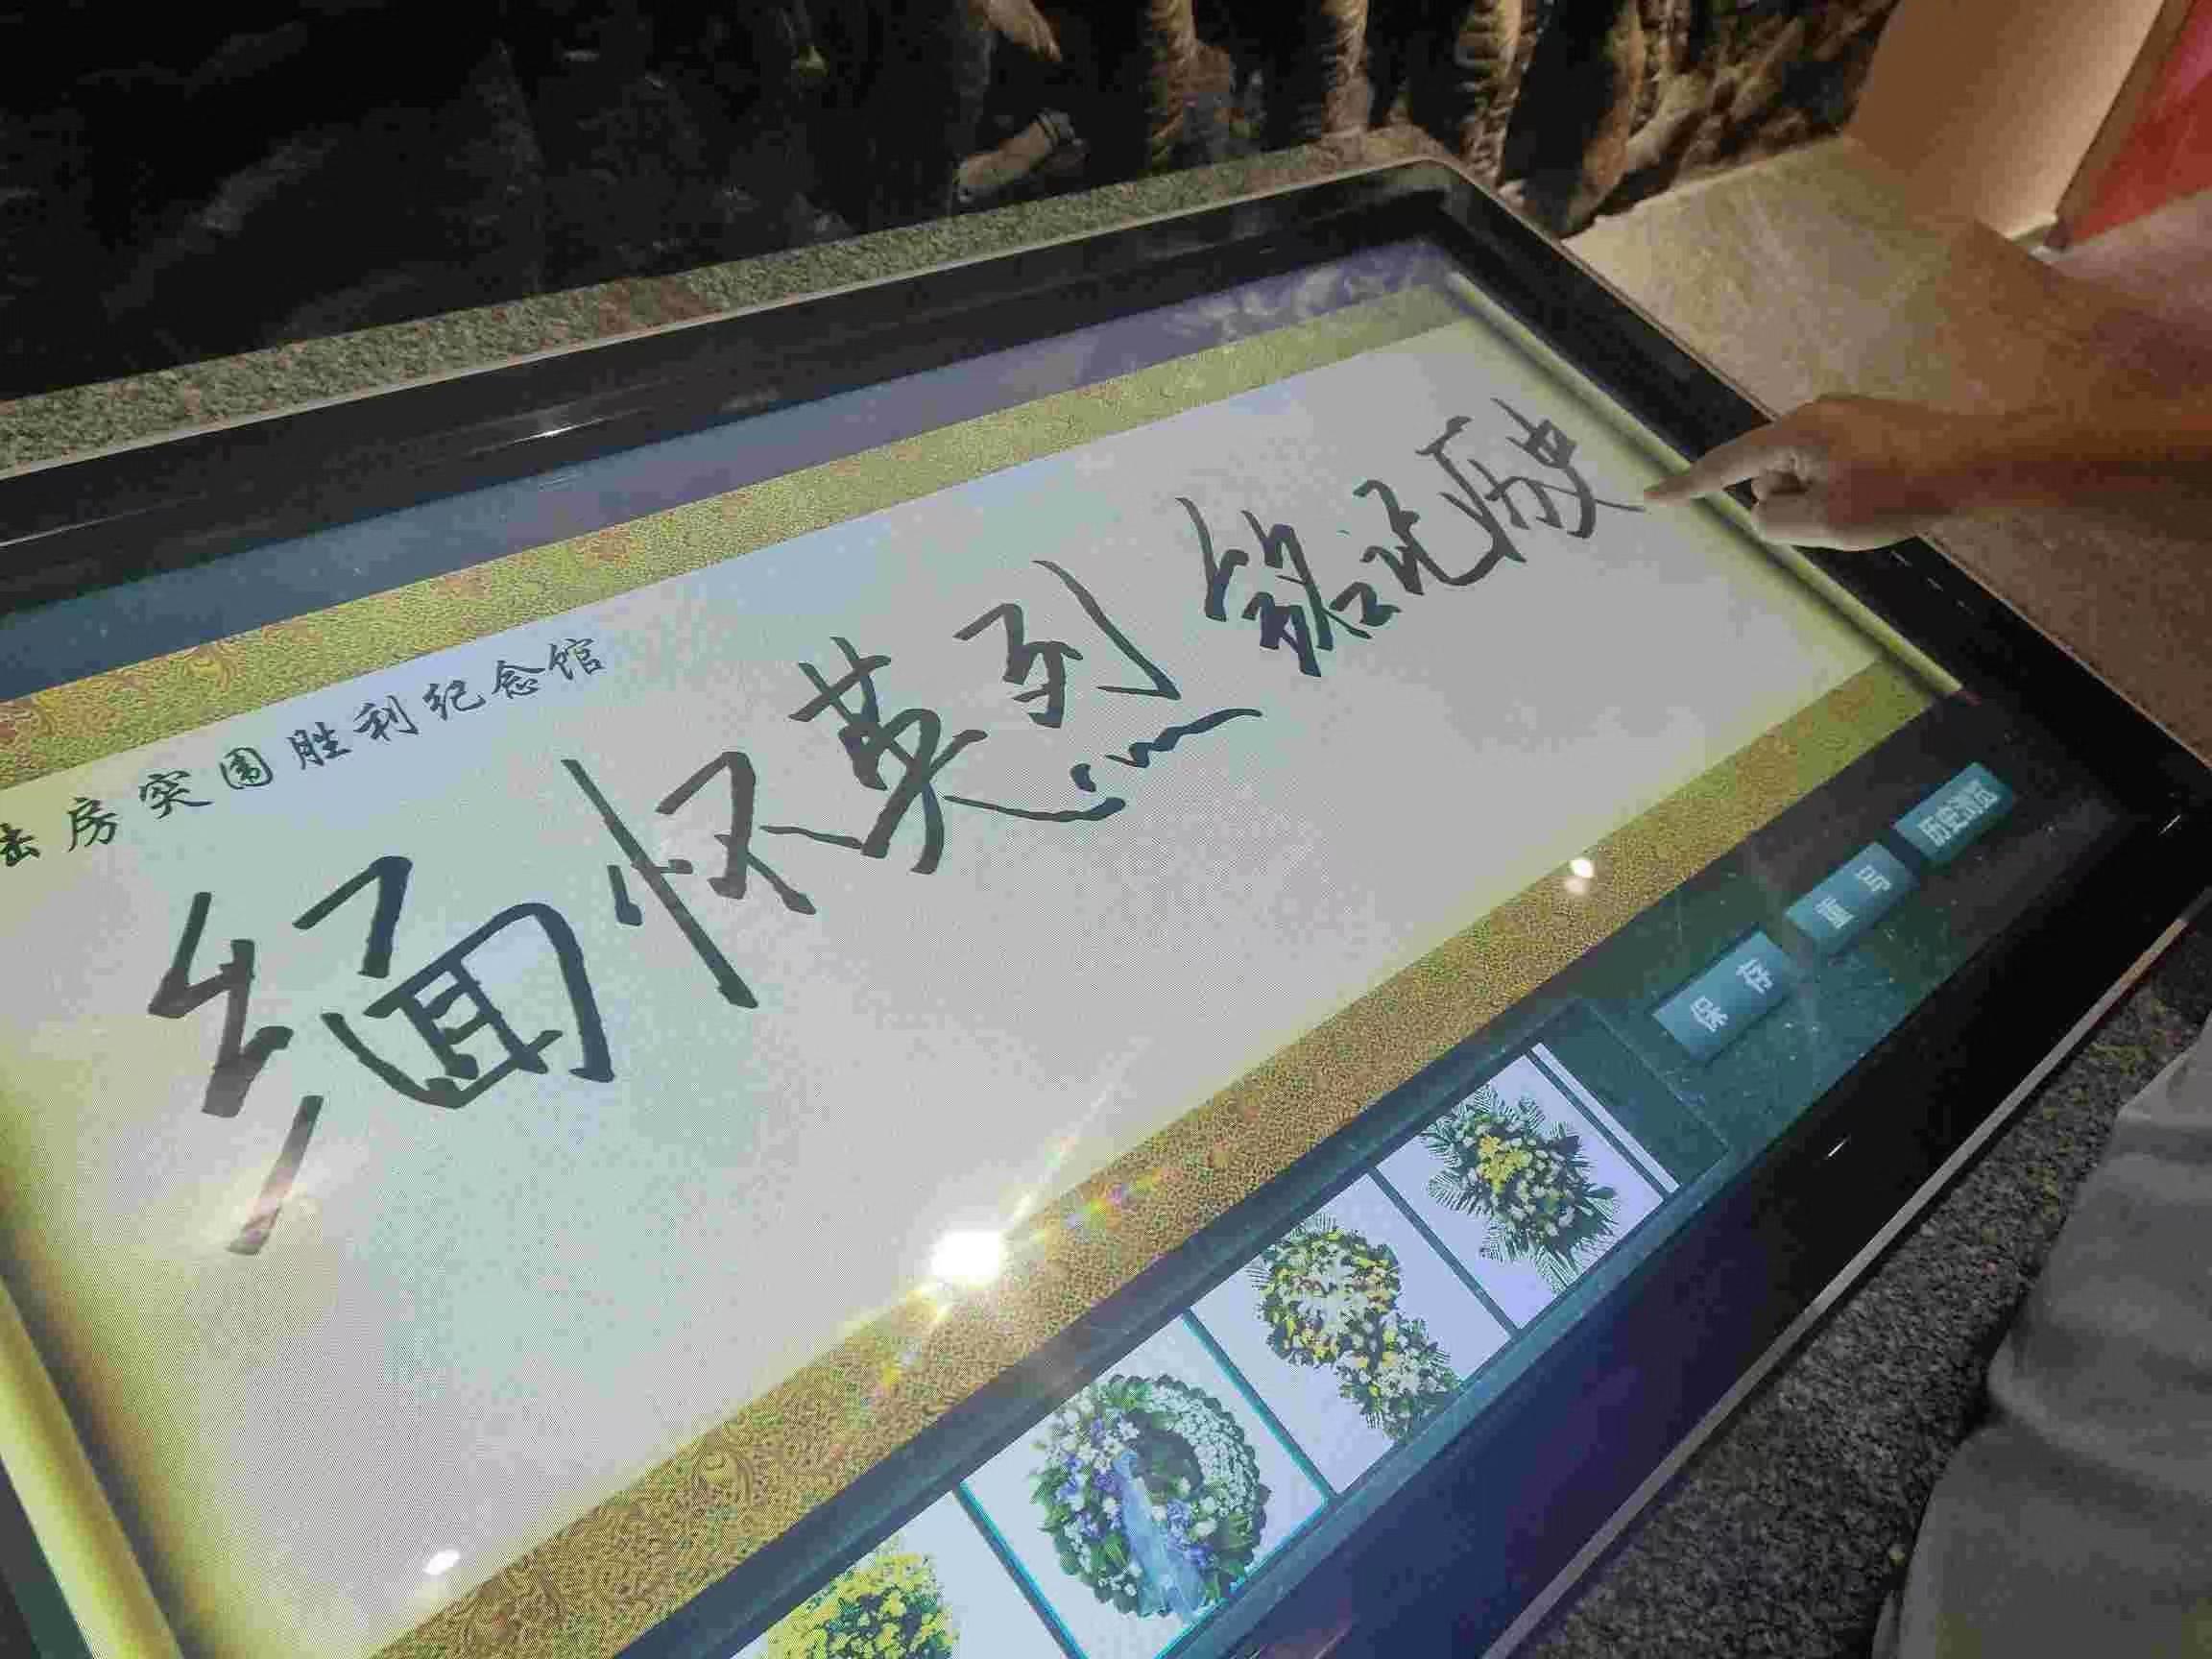 房突围胜利纪念馆
缅怀英烈 铭记历史
保存
重写
历史